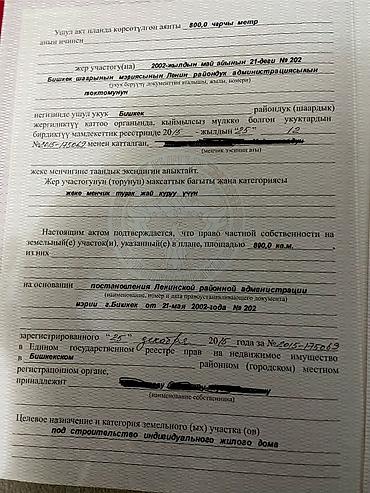 Ушул акт планда көрсөтүлгөн аянты 800,0 чарчы метр
анын ичинен
жер участогу(на) 2002-жылдын май айынын 21-деги №202
Бишкек шаарынын мэриясынын Ленин райондук администрациясынын
(укук берүүчү документтин аталышы, жылы, номери)
токтомунун
негизинде ушул укук Бишкек райондук (шаардык)
жергиликтүү каттоо органында, кыймылсыз мүлккө болгон укуктардын
бирдиктүү мамлекеттик реестринде 2015 - жылдын "25" 12
№2015-175069 менен катталган,
(менчик ээсинин аты)
жеке менчигине таандык экендигин аныктайт.
Жер участогунун (торунун) максаттык багыты жана категориясы
жеке менчик турак жай куруу үчүн
Настоящим актом подтверждается, что право частной собственности на
земельный(е) участок(и), указанный(е) в плане, площадью 800,0 кв.м.
из них
на основании постановления Ленинской районной администрации
(наименование, номер и дата правоустанавливающего документа)
мэрии г.Бишкек от 21-мая 2002-года № 202
зарегистрированного "25" декабря 2015 года за №2015-175069
в Едином государственном реестре прав на недвижимое имущество
в Бишкекском районном (городском) местном
регистрационном органе,
принадлежит
(наименование собственника)
Целевое назначение и категория земельного (ых) участка (ов)
под строительство индивидуального жилого дома